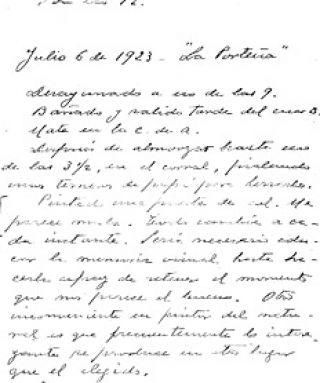 Julio 6 de 1923 - "La Porteña"
Desayunado a eso de las 9.
Bañado y salido tarde del cuarto.
Mate en la c. de a.
Después de almorzar hasta eso
de las 3½, en el corral,
unos terneros de
Pintado una de sol. Me
parece mala. Todo cambia a ca-
da instante. Sería necesario edu-
car la memoria visual, hasta ha-
cerla capaz de retener el momento
que nos parece el bueno. Otro
inconveniente en pintar del natu-
ral es que frecuentemente lo intere-
sante se produce en otro lugar
que el elegido.